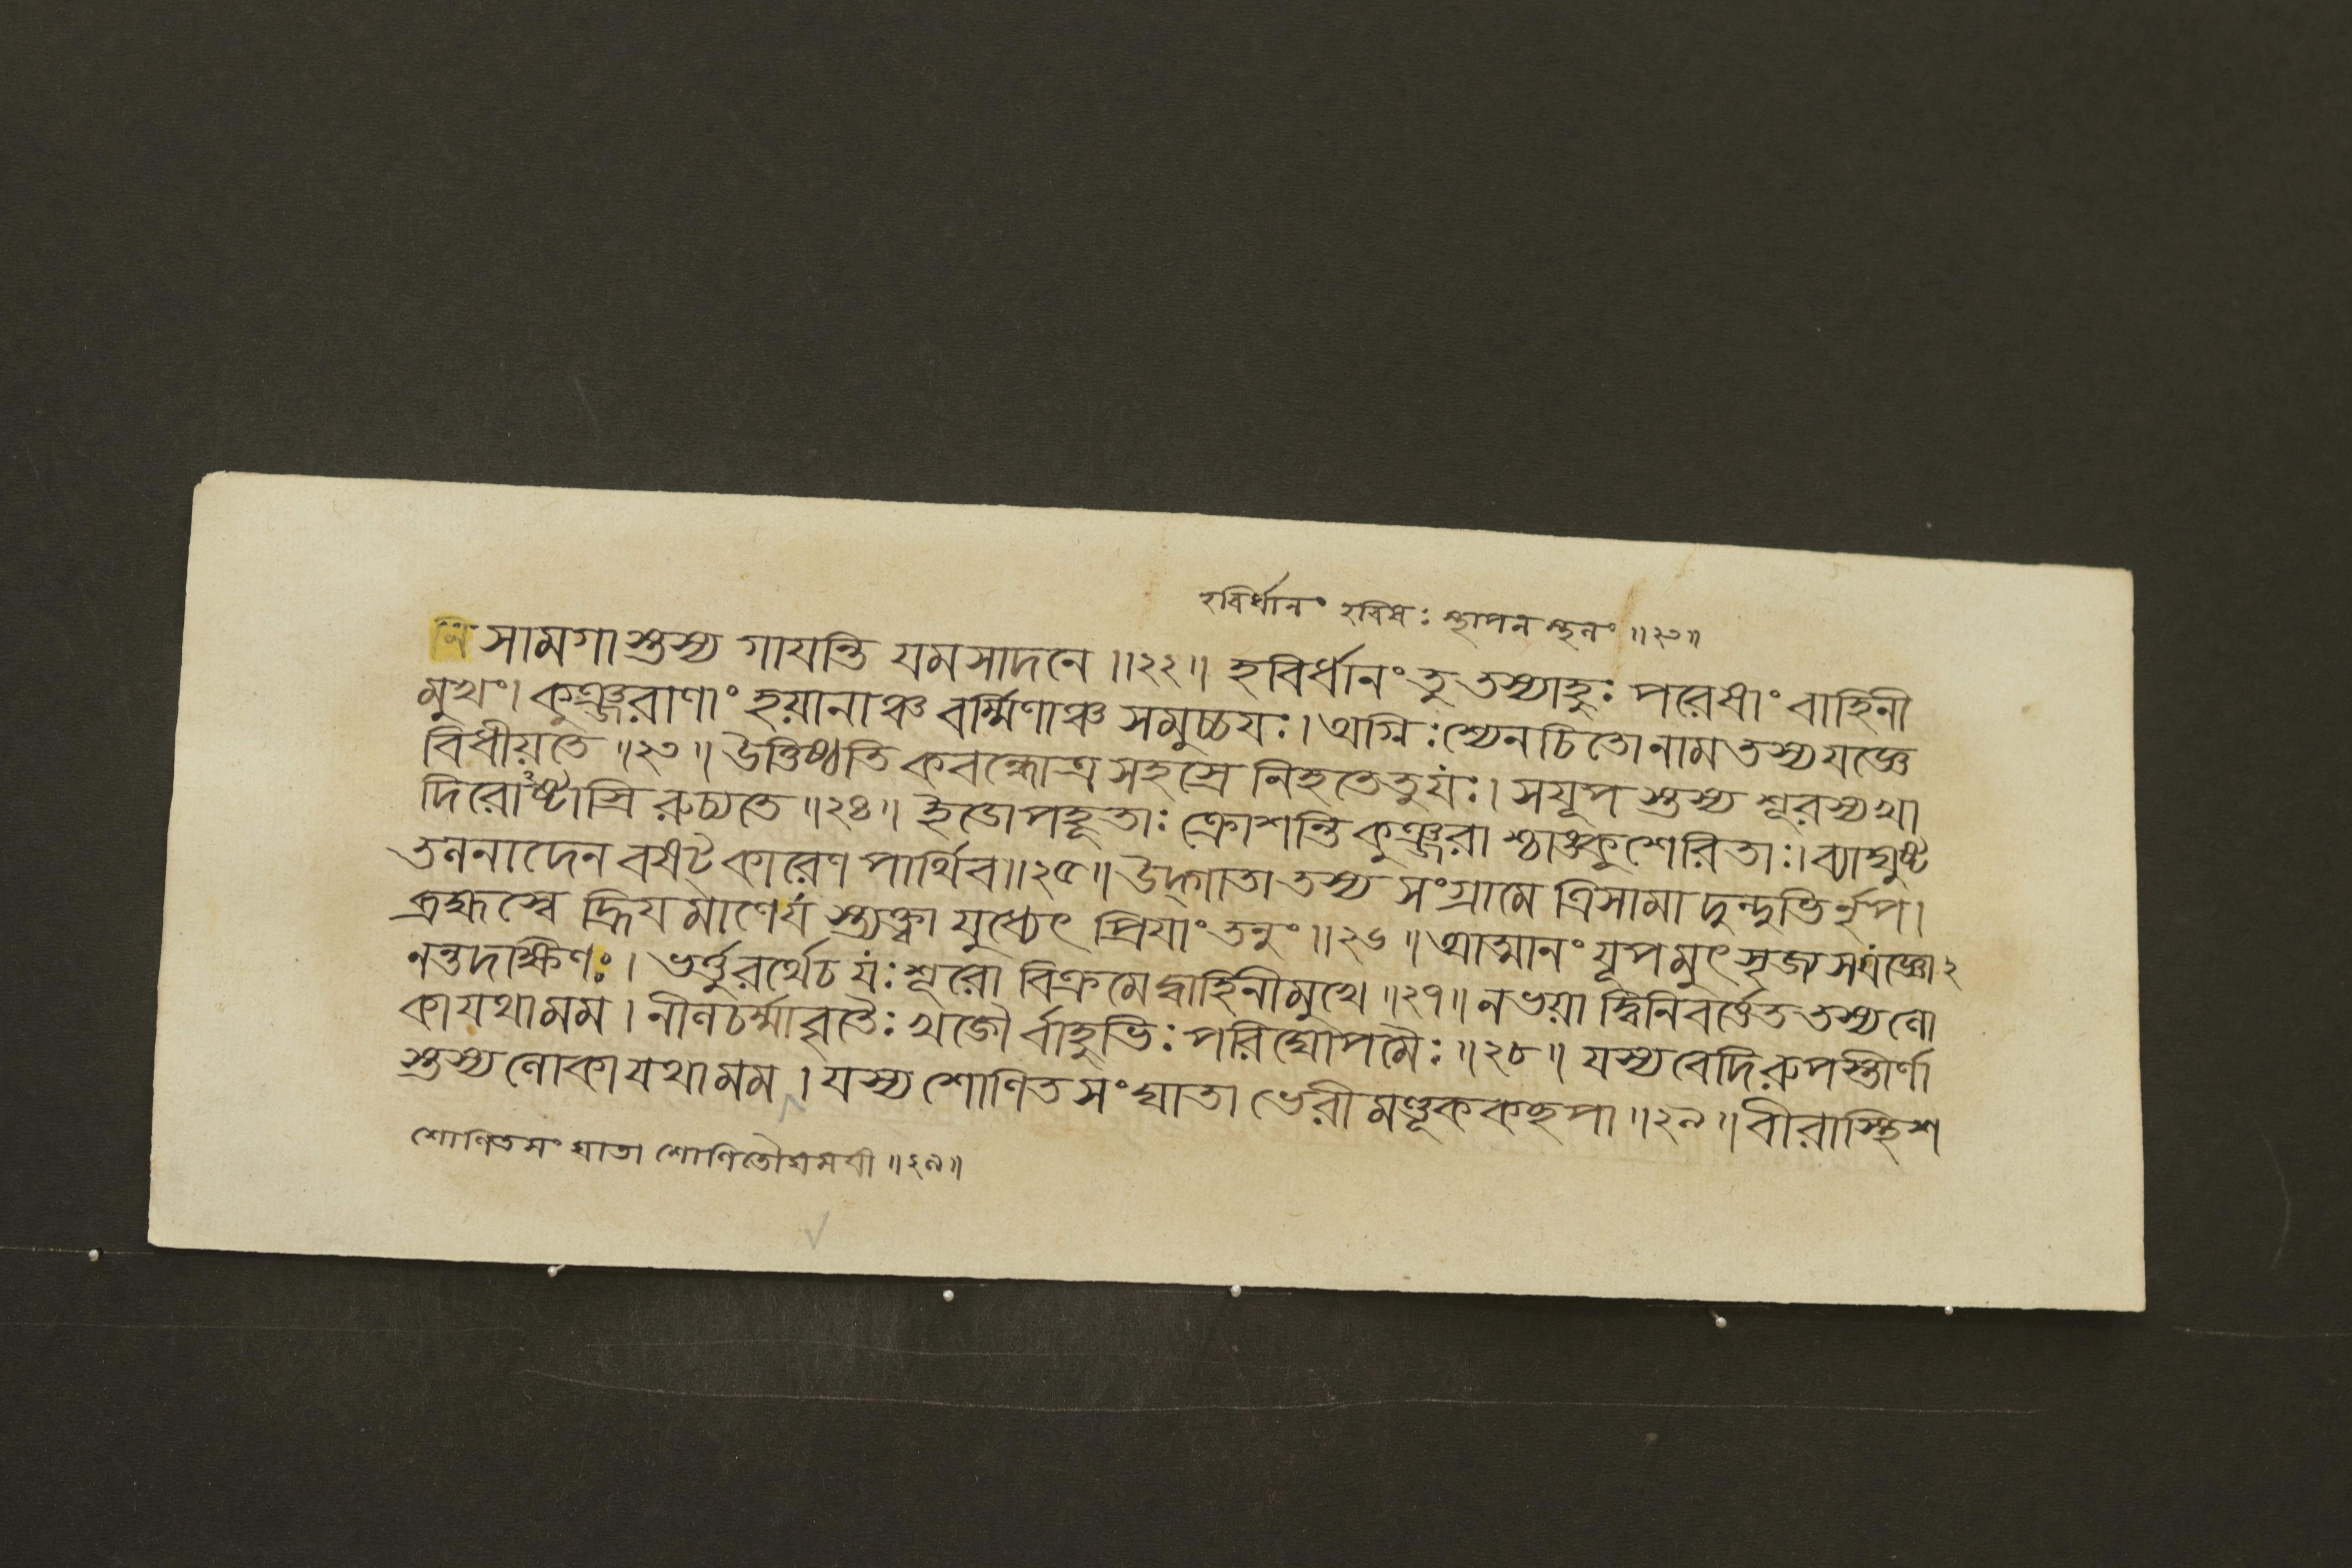 হবির্ধানং হবিষঃ স্থাপন স্থনং ॥২৩॥
নি সামগাস্তস্য গাযন্তি যমসাদনে ॥২২॥ হবির্ধানং তু তস্যাহুঃ পরেষাং বাহিনী
মুখং। কুঞ্জরাণাং হয়ানাঞ্চ বর্ম্মিণাঞ্চ সমুচ্চযঃ। অগ্নিঃ শ্যেনচিতোনাম তস্য যজ্ঞে
বিধীয়তে ॥২৩॥ উত্তিষ্ঠতি কবন্ধোত্র সহস্রে নিহতে তু যঃ। সযূপ স্তস্য শূরস্য খা
দিরোঽষ্টাস্রি রুচ্যতে ॥২৪॥ ইডোপহূতাঃ ক্রোশন্তি কুঞ্জরা শ্চাঙ্কুশেরিতাঃ। ব্যাঘুষ্ট
তলনাদেন বষট্কারেণ পার্থিব॥২৫॥ উদ্গাতা তস্য সংগ্রামে ত্রিসামা দুন্দুভির্নৃপ।
ব্রহ্মস্বে হ্রিযমাণেযস্ত্যক্ত্বা যুধ্যেৎ প্রিযাং তনুং ॥২৬॥ আত্মানং যূপমুৎসৃজ্য সযজ্ঞো২
নন্তদক্ষিণঃ। ভর্ত্তুরর্থেচ যঃ শূরো বিক্রমেদ্বাহিনীমুখে ॥২৭॥ ন ভয়া দ্বিনিবর্ত্তেত তস্যলো
কা যথা মম। নীলচর্ম্মাবৃতৈঃ খড্গৈর্বাহুভিঃ পরিঘোপমৈঃ ॥২৮॥ যস্য বেদিরুপস্তীর্ণা
স্তস্য লোকা যথা মম। যস্য শোণিতসংঘাতা ভেরীমণ্ডূককচ্ছপা ॥২৯॥ বীরাস্থিশ
শোণিতসংঘাতা শোণিতৌঘমযী ॥২৯॥